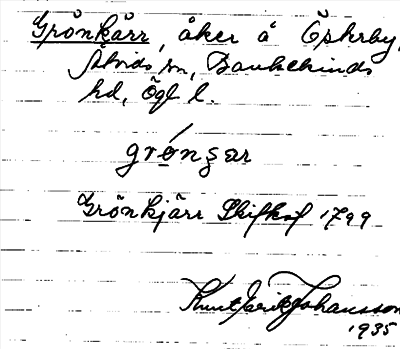 Grönkärr, åker å Öpkrby,
Åtvids sn, Bankekinds
hd, Ögl l.
grö́nşar
Grönkjärr Skifksf 1799
Knut Erik Johansson
1935